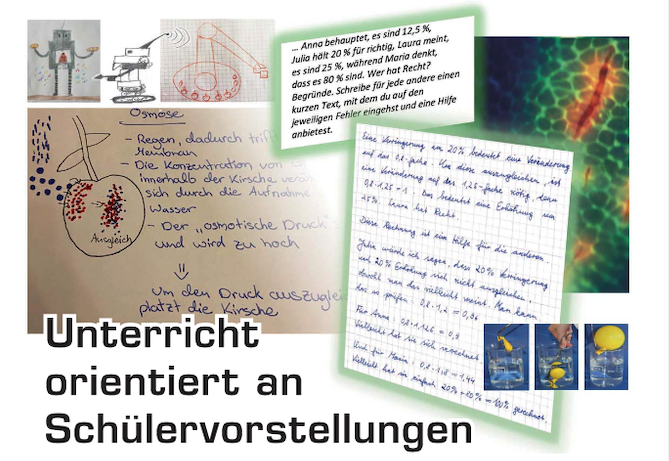 ... Anna behauptet, es sind 12,5 %,
Julia hält 20 % für richtig, Laura meint,
es sind 25 %, während Maria denkt,
dass es 80 % sind. Wer hat Recht?
Begründe. Schreibe für jede andere einen
kurzen Text, mit dem du auf den
jeweiligen Fehler eingehst und eine Hilfe
anbietest.
Osmose
- Regen, dadurch triff
Membran
- Die Konzentration von
innerhalb der Kirsche
sich durch die Aufnahme
Wasser
- Der „osmotische Druck"
und wird zu hoch
⇓
Um den Druck auszuglei
platzt die Kirsche
Ausgleich
Eine Verringerung um 20% bedeutet eine Veränderung
auf das 0,8-fache. Um diese auszugleichen, ist
eine Veränderung auf das 1,25-fache nötig, denn
0,8·1,25=1. Das bedeutet eine Erhöhung um
25%. Laura hat Recht.
Diese Rechnung ist eine Hilfe für die anderen.
Julia würde ich sagen, dass 20% Verringerung
und 20% Erhöhung sich nicht ausgleichen,
obwohl man das vielleicht meint. Man kann
das so prüfen: 0,8·1,2=0,96
Für Anna: 0,8·1,125=0,9
Vielleicht hat sie sich verrechnet.
Und für Maria: 0,8·1,8=1,44
Vielleicht hat sie einfach 20%+80%=100% gerechnet.
Unterricht
orientiert an
Schülervorstellungen